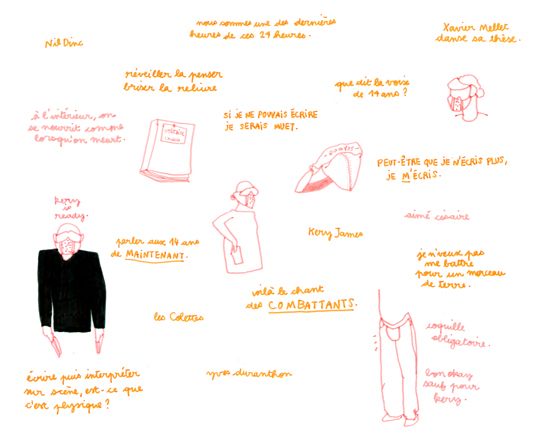 Nil Dinc
nous sommes une des dernières
heures de ces 24 heures.
Xavier Mellet
danse sa thèse.
réveiller la penser
briser la reliure
que dit la voise
de 14 ans ?
à l'intérieur, on
se nourrit comme
lorsqu'on meurt.
SI JE NE POUVAIS ÉCRIRE
JE SERAIS MUET.
PEUT-ÊTRE QUE JE N'ÉCRIS PLUS,
JE M'ÉCRIS.
kery
is
ready.
aimé césaire
parler aux 14 ans
de MAINTENANT.
Kery James
je n'veux pas
me battre
pour un morceau
de terre.
voilà le chant
des COMBATTANTS.
les Colettes
coquille
obligatoire.
bon okay
sauf pour
kery.
écrire puis interpréter
sur scène, est-ce que
c'est physique ?
yves duranthon